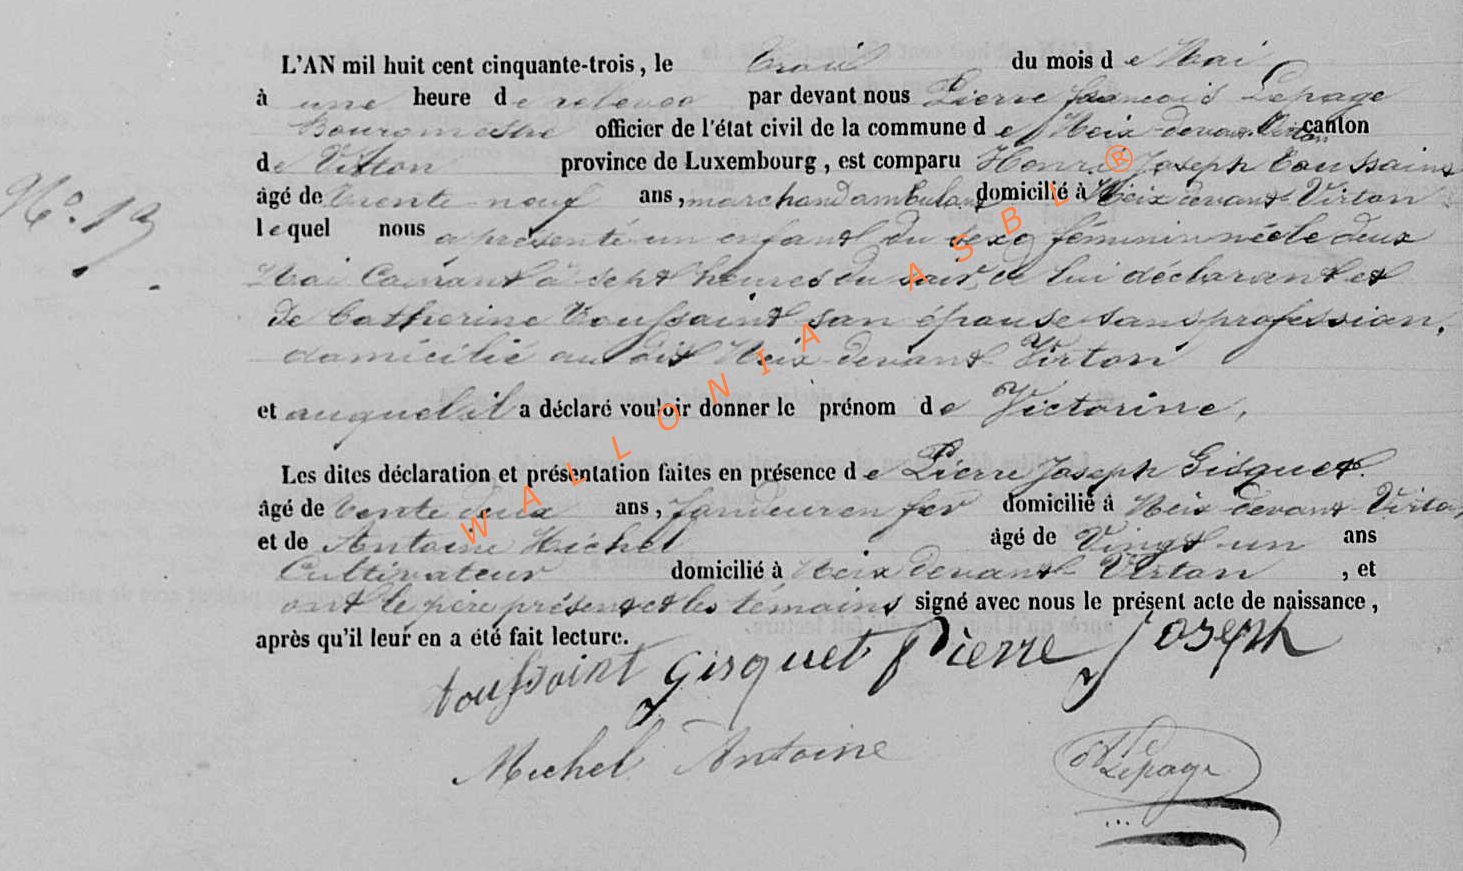 L'AN mil huit cent cinquante-trois, le trois du mois de Mai
à une heure de relevée par devant nous Pierre françois Lepage
Bourgmestre officier de l'état civil de la commune de Meix-devant-Virton canton
de Virton province de Luxembourg, est comparu Henri Joseph toussaint
N.° 13
âgé de trente-neuf ans, marchand ambulant domicilié à Meix devant-Virton
lequel nous a présenté un enfant du sexe féminin née le deux
Mai Courant à sept heures du soir, de lui déclarant et
de Catherine toussaint son épouse sans profession,
domicilié au dit Meix-devant-Virton
et auquel il a déclaré vouloir donner le prénom de Victorine,
Les dites déclaration et présentation faites en présence de Pierre Joseph Gisquet
âgé de trente deux ans, fondeur en fer domicilié à Meix-devant-Virton
et de Antoine Michel âgé de Vingt-un ans
Cultivateur domicilié à Meix devant-Virton, et
ont le père présent et les témoins signé avec nous le présent acte de naissance,
après qu'il leur en a été fait lecture.
toussaint Gisquet Pierre Joseph
Michel Antoine
Lepage
WALLONIA ASBL ®